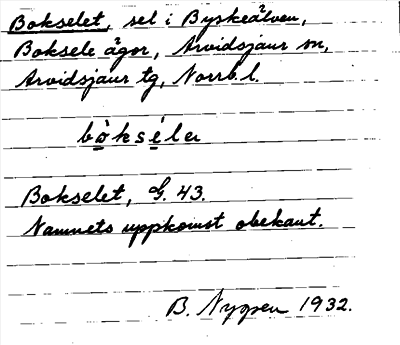 Bokselet, sel i Byskeälven,
Boksele ägor, Arvidsjaur sn,
Arvidsjaur tg, Norrb. l.
bo̲̊kse̲̊ler
Bokselet, G. 43.
Namnets uppkomst obekant.
B. Nygren 1932.